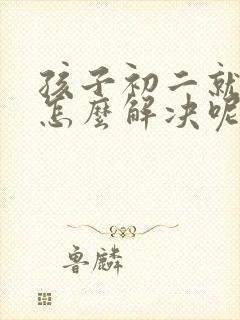 孩子初二就
怎麼解决呢
鲁麟